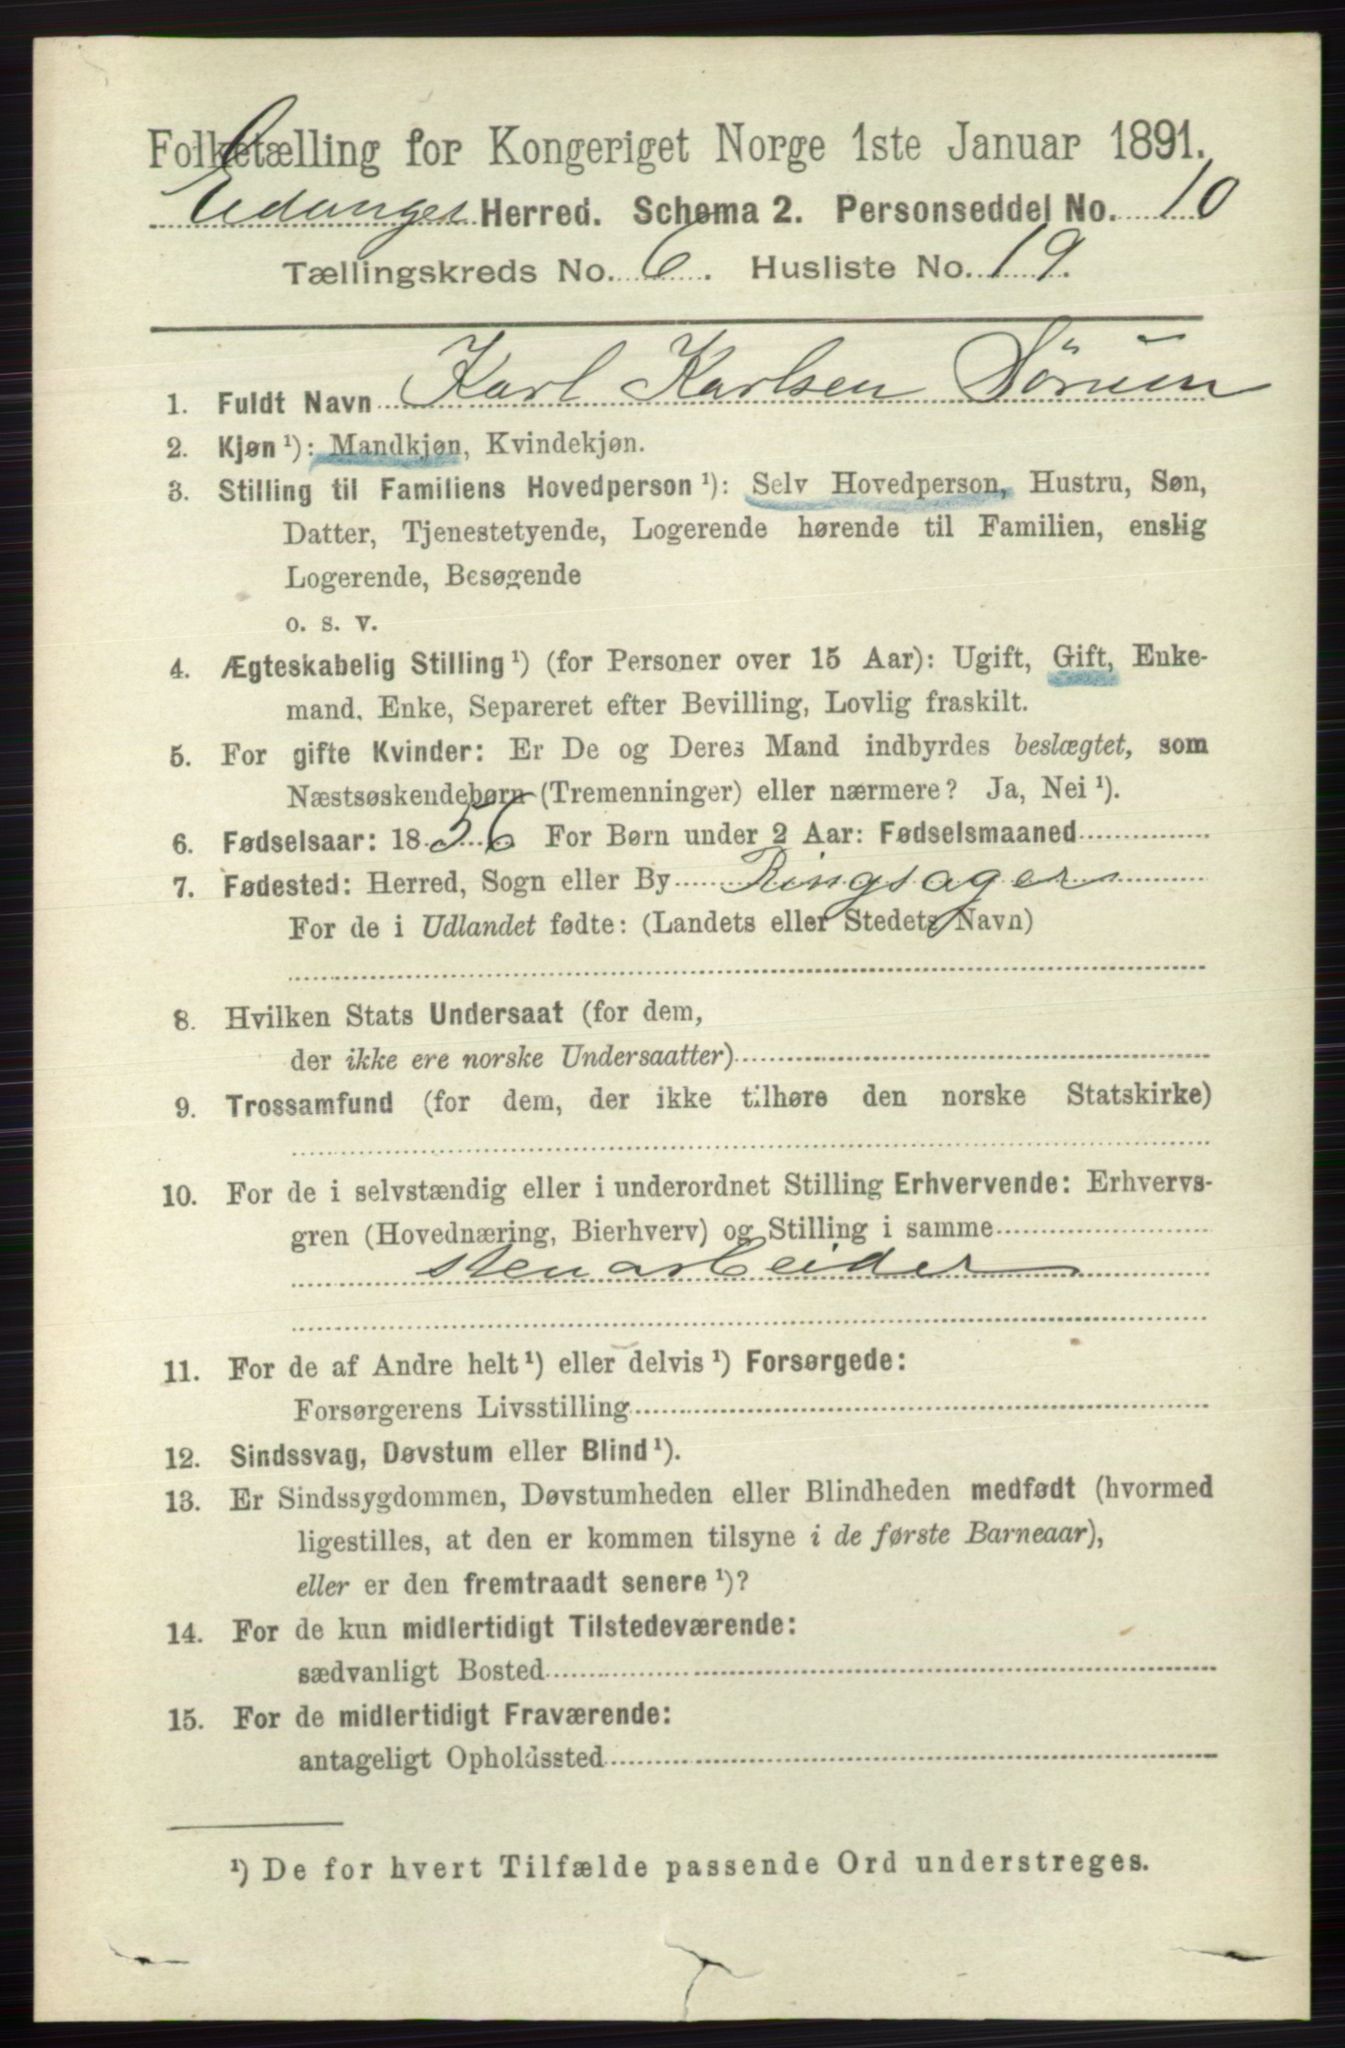 Folketælling for Kongeriget Norge 1ste Januar 1891.
Eidanger Herred. Schema 2. Personseddel No. 10
Tællingskreds No. 6. Husliste No. 19.
1. Fuldt Navn Karl Karlsen Sörum
2. Kjøn ¹): Mandkjøn, Kvindekjøn.
3. Stilling til Familiens Hovedperson ¹): Selv Hovedperson, Hustru, Søn,
Datter, Tjenestetyende, Logerende hørende til Familien, enslig
Logerende, Besøgende
o. s. v.
4. Ægteskabelig Stilling ¹) (for Personer over 15 Aar): Ugift, Gift, Enke-
mand, Enke, Separeret efter Bevilling, Lovlig fraskilt.
5. For gifte Kvinder: Er De og Deres Mand indbyrdes beslægtet, som
Næstsøskendebørn (Tremenninger) eller nærmere? Ja, Nei ¹).
6. Fødselsaar: 1856 For Børn under 2 Aar: Fødselsmaaned
7. Fødested: Herred, Sogn eller By Ringsager
For de i Udlandet fødte: (Landets eller Stedets Navn)
8. Hvilken Stats Undersaat (for dem,
der ikke ere norske Undersaatter)
9. Trossamfund (for dem, der ikke tilhøre den norske Statskirke)
10. For de i selvstændig eller i underordnet Stilling Erhvervende: Erhvervs-
gren (Hovednæring, Bierhverv) og Stilling i samme
stenarbeider
11. For de af Andre helt ¹) eller delvis ¹) Forsørgede:
Forsørgerens Livsstilling
12. Sindssvag, Døvstum eller Blind ¹).
13. Er Sindssygdommen, Døvstumheden eller Blindheden medfødt (hvormed
ligestilles, at den er kommen tilsyne i de første Barneaar),
eller er den fremtraadt senere ¹)?
14. For de kun midlertidigt Tilstedeværende:
sædvanligt Bosted
15. For de midlertidigt Fraværende:
antageligt Opholdssted
¹) De for hvert Tilfælde passende Ord understreges.